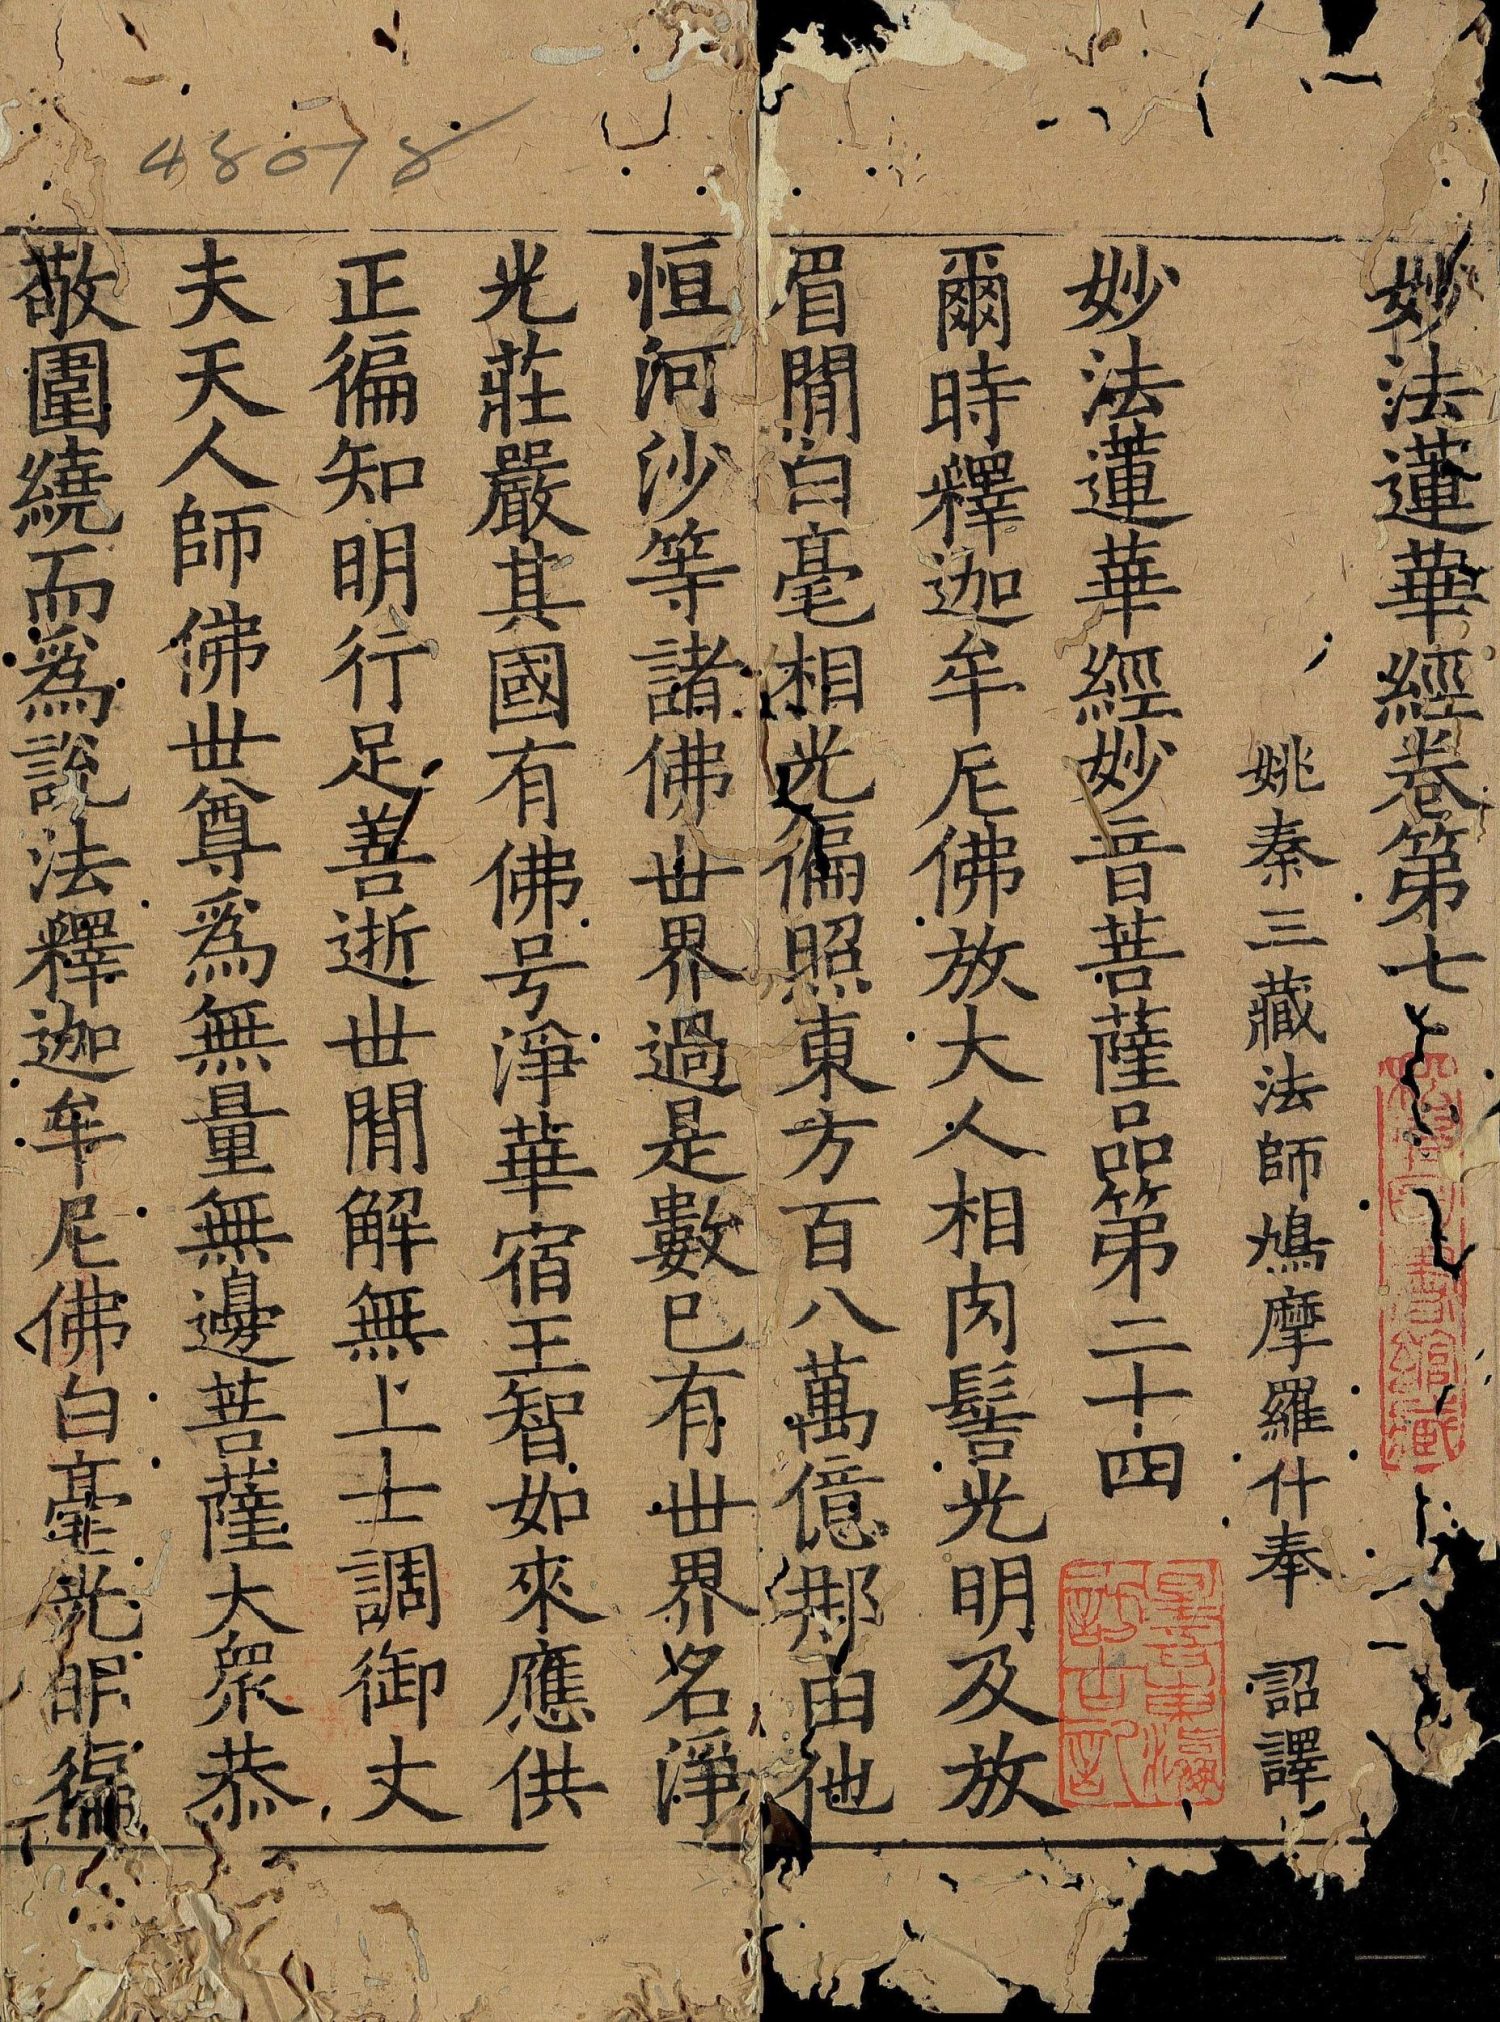 妙法蓮華經卷第七
姚秦三藏法師鳩摩羅什奉 詔譯
妙法蓮華經妙音菩薩品第二十四
爾時釋迦牟尼佛放大人相肉髻光明及放
眉間白毫相光徧照東方百八萬億那由他
恒河沙等諸佛世界過是數已有世界名淨
光莊嚴其國有佛号淨華宿王智如來應供
正徧知明行足善逝世間解無上士調御丈
夫天人師佛世尊爲無量無邊菩薩大眾恭
敬圍繞而爲說法釋迦牟尼佛白毫光明徧
48078